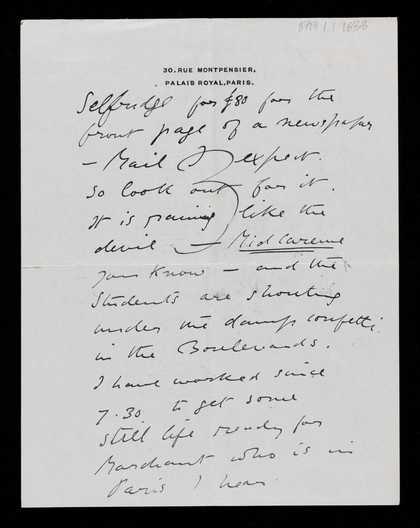 30. RUE MONTPENSIER,
PALAIS ROYAL, PARIS.
Selfridge for £80 for the
front page of a newspaper
– Mail I expect.
So look out for it.
It is raining like the
devil – Mid Careme
you know – and the
Students are shouting
under the damp confetti
in the Boulevards.
I have worked since
7.30 to get some
still life ready for
Marchant who is in
Paris I hear